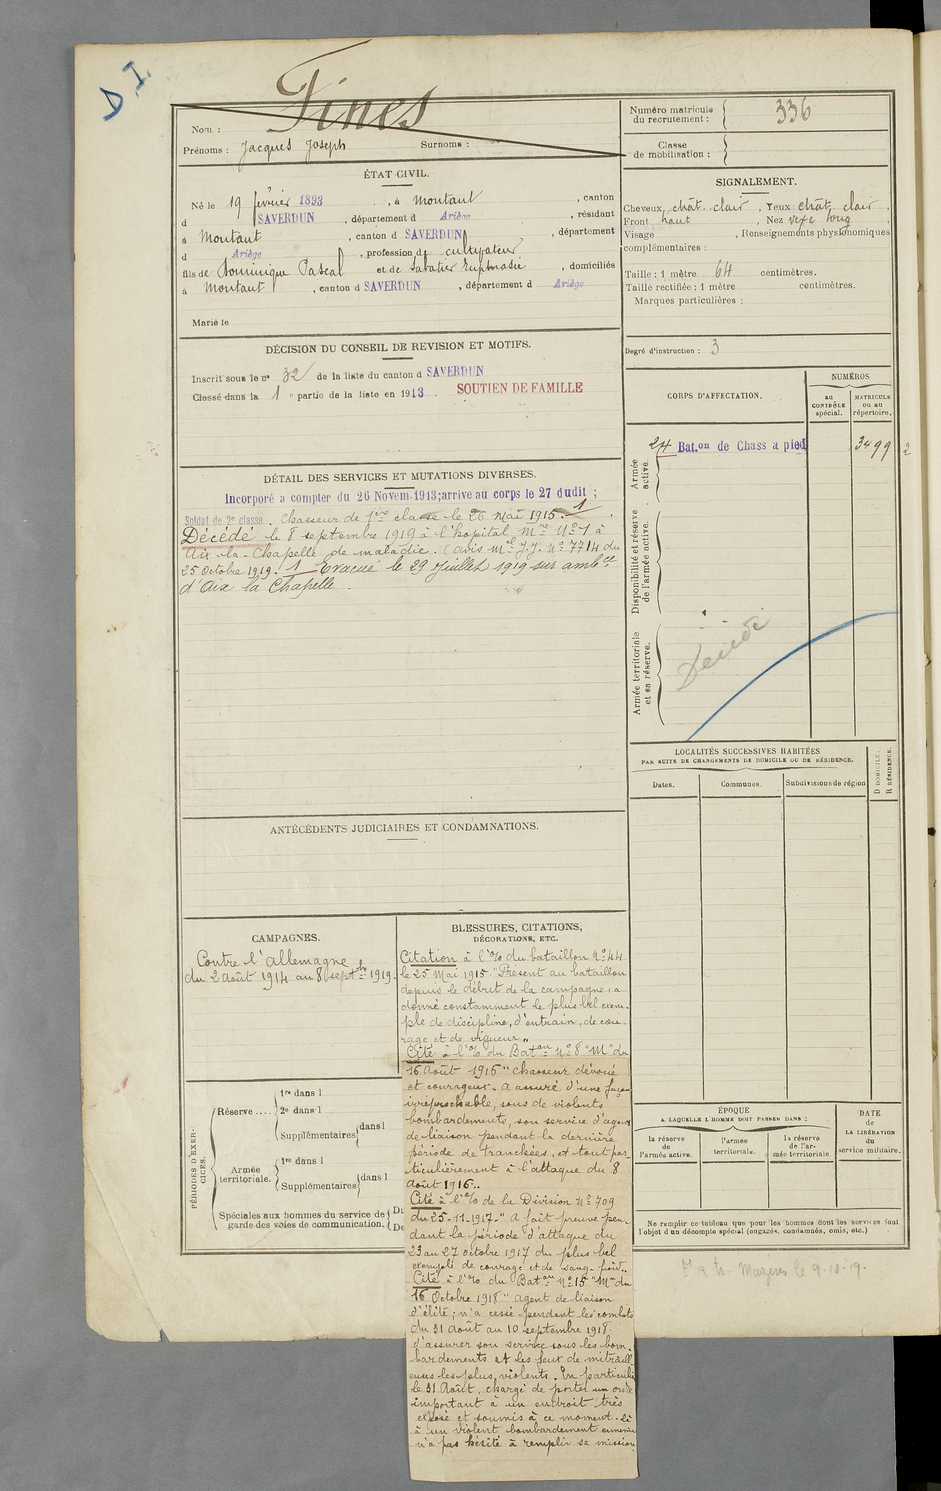 D I.
Nom : Fines
Prénoms : Jacques Joseph Surnoms :
ÉTAT CIVIL.
Né le 19 février 1893, à Montaut, canton
d SAVERDUN, département d Ariège, résidant
à Montaut, canton d SAVERDUN, département
d Ariège, profession de cultivateur
fils de Dominique Pascal et de Sabatier Euphrasie, domiciliés
à Montaut, canton d SAVERDUN, département d Ariège
Marié le
DÉCISION DU CONSEIL DE REVISION ET MOTIFS.
Inscrit sous le no 32 de la liste du canton d SAVERDUN
Classé dans la 1e partie de la liste en 1913. SOUTIEN DE FAMILLE
DÉTAIL DES SERVICES ET MUTATIONS DIVERSES.
Incorporé a compter du 26 Novem. 1913; arrive au corps le 27 dudit ;
Soldat de 2e classe. Chasseur de 1ère classe le 26 Mai 1915. 1
Décédé le 8 septembre 1919 à l'hopital Mre No 1 à
Aix-la-Chapelle de maladie. (avis Mel J.J. No 7714 du
25 Octobre 1919. 1 Evacué le 29 Juillet 1919 sur ambce
d'Aix la Chapelle.
ANTÉCÉDENTS JUDICIAIRES ET CONDAMNATIONS.
CAMPAGNES.
Contre l'Allemagne
du 2 août 1914 au 8 septbre 1919.
BLESSURES, CITATIONS,
DÉCORATIONS, ETC.
Citation à l'% du bataillon No 44
le 25 Mai 1915 "Présent au bataillon
depuis le début de la campagne, a
donné constamment le plus bel exem-
ple de discipline, d'entrain, de cou-
rage et de vigueur"
Cité à l'% du Baton No 8 "M" du
16 Août 1916 "chasseur dévoué
et courageux. A assuré d'une façon
irréprochable, sous de violents
bombardements, son service d'agent
de liaison pendant la dernière
période de tranchées, et tout par
ticulièrement à l'attaque du 8
août 1916..
Cité à l'% de la Division No 709
du 25-11-1917. "A fait preuve pen-
dant la période d'attaque du
23 au 27 octobre 1917 du plus bel
exemple de courage et de sang-froid..
Cité à l'% du Baton No 15 "M" du
16 Octobre 1918 "agent de liaison
d'élite; n'a cessé pendant les combats
du 31 août au 10 septembre 1918
d'assurer son service sous les bom-
bardements et les feux de mitraill
euses les plus violents. En particulier
le 31 Août, chargé de porter un ordre
important à un endroit très
exposé et soumis à ce moment-là
à un violent bombardement ennemi
n'a pas hésité à remplir sa mission
PÉRIODES D'EXER-
CICES.
Réserve....
1re dans l
2e dans l
Supplémentaires dans l
Armée
territoriale.
1re dans l
Supplémentaires dans l
Spéciales aux hommes du service de
garde des voies de communication.
Du
Du
Numéro matricule
du recrutement : 336
Classe
de mobilisation :
SIGNALEMENT.
Cheveux chât. clair, Yeux chât. clair,
Front haut, Nez vexe long,
Visage , Renseignements physionomiques
complémentaires :
Taille : 1 mètre 64 centimètres.
Taille rectifiée : 1 mètre centimètres.
Marques particulières :
Degré d'instruction : 3
CORPS D'AFFECTATION.
NUMÉROS
au
CONTRÔLE
spécial.
MATRICULE
ou au
répertoire.
24 Bat.on de Chass a pied 3499 2
Armée
active.
Disponibilité et réserve
de l'armée active.
Armée territoriale
et sa réserve.
Décédé
LOCALITÉS SUCCESSIVES HABITÉES
PAR SUITE DE CHANGEMENTS DE DOMICILE OU DE RÉSIDENCE.
Dates. Communes. Subdivisions de région
D DOMICILE.
R RÉSIDENCE.
ÉPOQUE
A LAQUELLE L'HOMME DOIT PASSER DANS :
la réserve
de
l'armée active.
l'armée
territoriale.
la réserve
de l'ar-
mée territoriale
DATE
de
LA LIBÉRATION
du
service militaire.
Ne remplir ce tableau que pour les hommes dont les services font
l'objet d'un décompte spécial (engagés, condamnés, omis, etc.)
Mazères le 9-10-19.